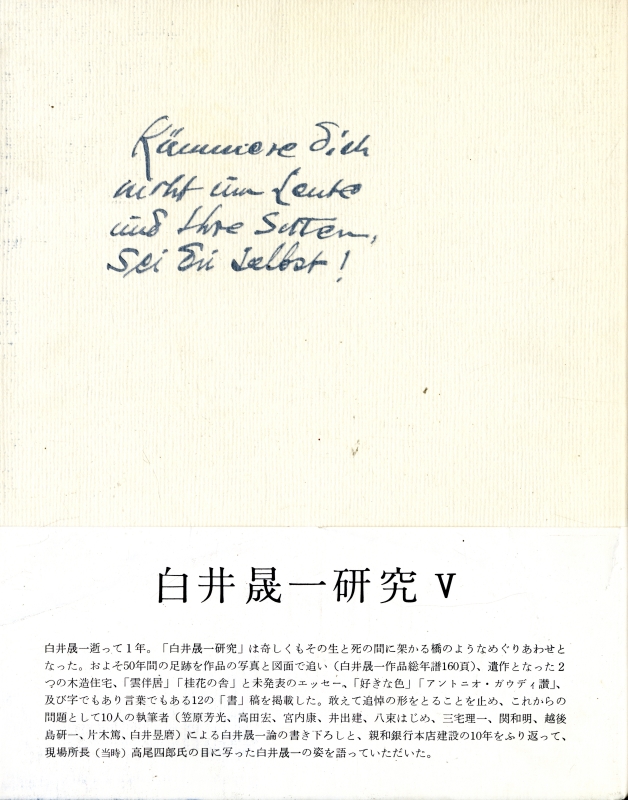 Kümmere Dich
nicht um Leute
und Ihre Sitten,
Sei Du selbst!
白井晟一研究 V
白井晟一逝って1年。「白井晟一研究」は奇しくもその生と死の間に架かる橋のようなめぐりあわせと
なった。およそ50年間の足跡を作品の写真と図面で追い（白井晟一作品総年譜160頁）、遺作となった2
つの木造住宅、「雲伴居」「桂花の舎」と未発表のエッセー、「好きな色」「アントニオ・ガウディ讃」、
及び字でもあり言葉でもある12の「書」稿を掲載した。敢えて追悼の形をとることを止め、これからの
問題として10人の執筆者（笠原芳光、高田宏、宮内康、井出建、八束はじめ、三宅理一、関和明、越後
島研一、片木篤、白井昱磨）による白井晟一論の書き下ろしと、親和銀行本店建設の10年をふり返って、
現場所長（当時）高尾四郎氏の目に写った白井晟一の姿を語っていただいた。